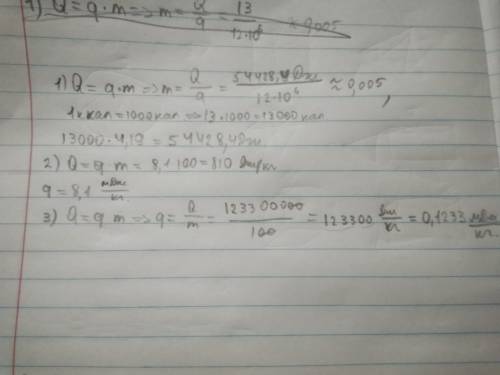 1) Q = q · m => m = Q/q = 13/12·10⁶ ≈ 0,005
1) Q = q · m => m = Q/q = 54428,4Дж/12·10⁶ ≈ 0,005
1ккал = 1000кал => 13·1000 = 13000 кал
13000·4,19 = 54428,4Дж.
2) Q = q m = 8,1·100 = 810 Дж/кг
q = 8,1 мДж/кг.
3) Q = q m => q = Q/m = 12330000/100 = 123300 Дж/кг = 0,1233 мДж/кг.